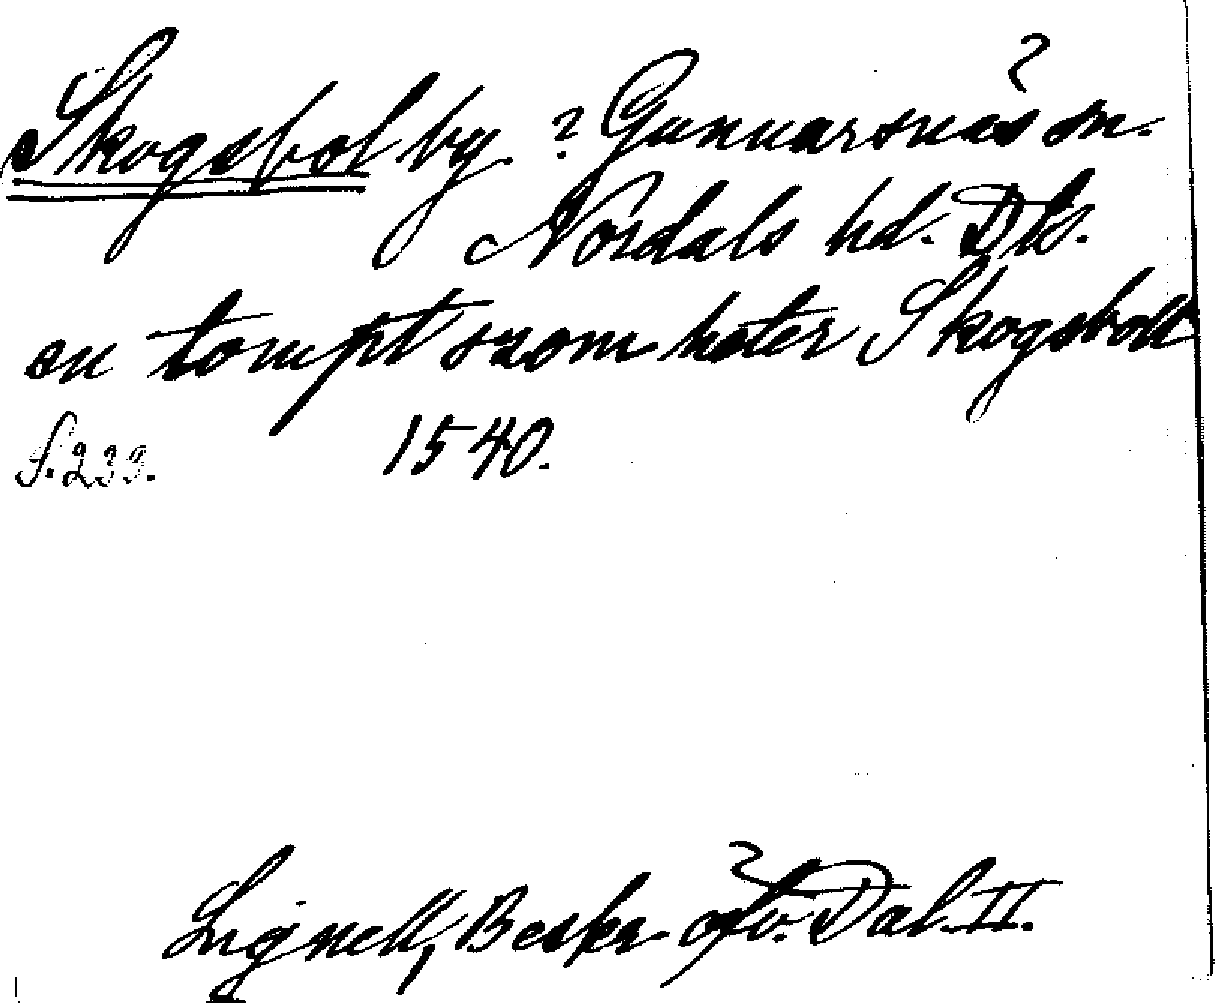 Skogsbol by. ? Gunnarsnäs sn.
Nordals hd. Dls.
en tompt szom heter Skogsboll
S. 233. 1540.
Lignell, Beskr. öfv. Dal. II.